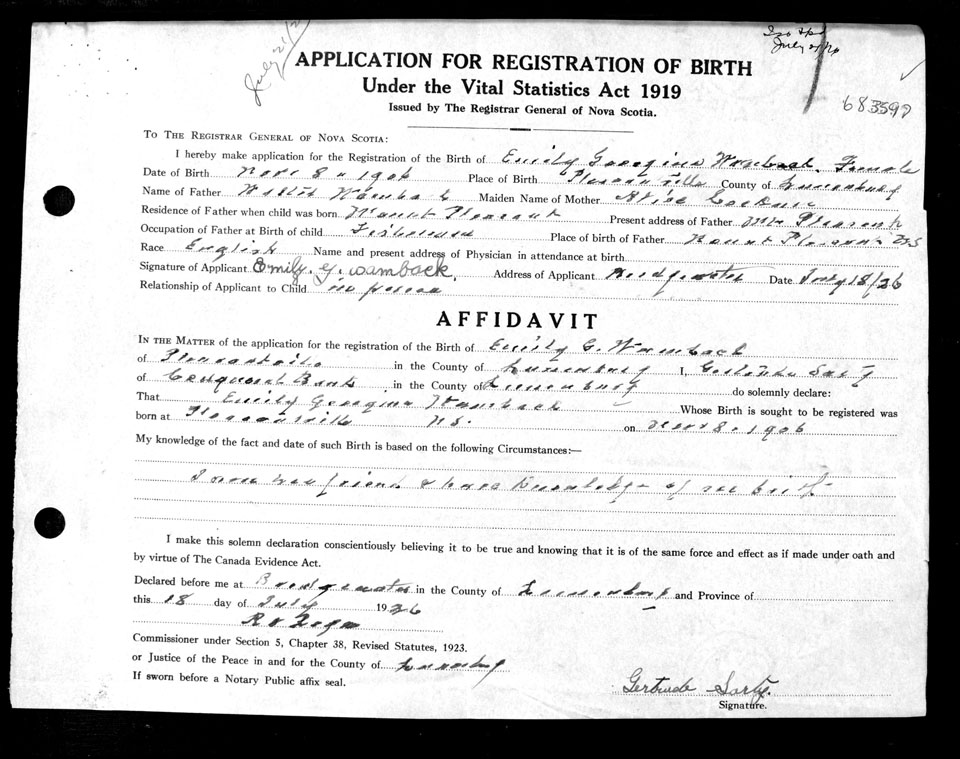 July 21/26
July 21/26
683597
APPLICATION FOR REGISTRATION OF BIRTH
Under the Vital Statistics Act 1919
Issued by The Registrar General of Nova Scotia.
TO THE REGISTRAR GENERAL OF NOVA SCOTIA:
I hereby make application for the Registration of the Birth of Emily Georgina Wamback. Female
Date of Birth Nov 8 1906 Place of Birth Pleasantville County of Lunenburg
Name of Father Wamback Maiden Name of Mother
Residence of Father when child was born Mount Pleasant Present address of Father Mt Pleasant
Occupation of Father at Birth of child Fisherman Place of birth of Father Mount Pleasant NS
Race English Name and present address of Physician in attendance at birth
Signature of Applicant Emily. G. Wamback. Address of Applicant Bridgewater Date July 18/26
Relationship of Applicant to Child in person
AFFIDAVIT
IN THE MATTER of the application for the registration of the Birth of Emily G. Wamback
of Pleasantville in the County of Lunenburg I, Gertrude Sarty
of Conquerall Bank in the County of Lunenburg do solemnly declare:
That Emily Georgina Wamback Whose Birth is sought to be registered was
born at Pleasantville N.S. on Nov 8. 1906
My knowledge of the fact and date of such Birth is based on the following Circumstances:—
friend & have knowledge of birth
I make this solemn declaration conscientiously believing it to be true and knowing that it is of the same force and effect as if made under oath and
by virtue of The Canada Evidence Act.
Declared before me at Bridgewater in the County of Lunenburg and Province of
this 18 day of July 1926
Commissioner under Section 5, Chapter 38, Revised Statutes, 1923.
or Justice of the Peace in and for the County of Lunenburg
If sworn before a Notary Public affix seal.
Gertrude Sarty.
Signature.